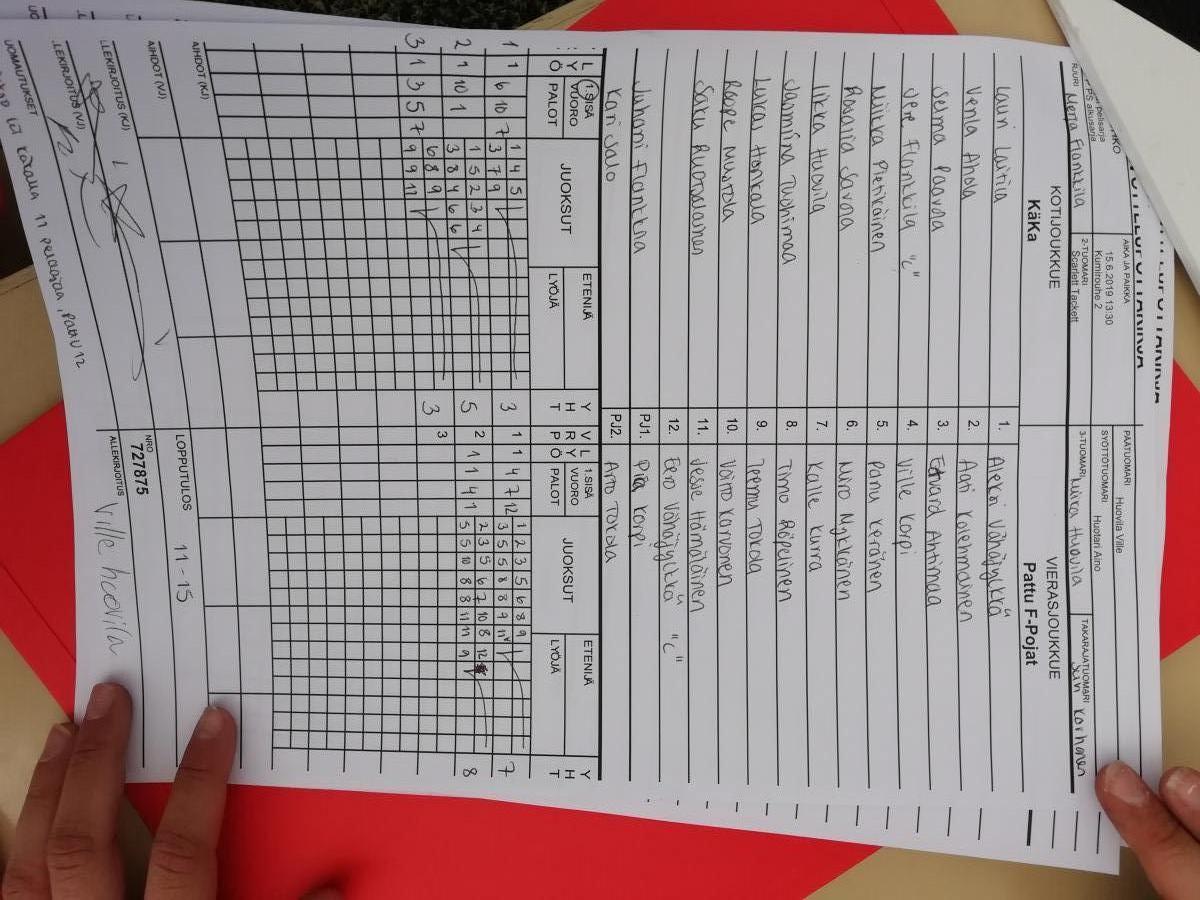 OTTELUPÖYTÄKIRJA
AIKA JA PAIKKA
15.6.2019 13:30
Kumirouhe 2
PÄÄTUOMARI Huovila Ville
SYÖTTÖTUOMARI Huotari Aino
Merja Flankkila
2-TUOMARI
Scarlett Tackett
3-TUOMARI
Huovila
TAKARAJATUOMARI
Korhonen
KOTIJOUKKUE VIERASJOUKKUE
KäKa Pattu F-Pojat
Lauri Laitila 1. Aleksi Vähäjylkkä
Venla Ahola 2. Aapi Kolehmainen
Selma Paavola 3. Edvard Ahtimaa
Jere Flankkila "C" 4. Ville Korpi
Miikka Pietikäinen 5. Panu Keränen
Roosaria Savaa 6. Niiro Mykkänen
Iikka Huovila 7. Kalle Kurra
Jasmiina Tuohimaa 8. Timo Röpelinen
Lukas Honkala 9. Teemu Tokola
Roope Mustola 10. Voitto Karvonen
Saku Ruotsalainen 11. Jesse Hämäläinen
12. Eero Vähäjylkkä "C"
Juhani Flankkila PJ1. Pia Korpi
Kari Salo PJ2. Arto Tokola
L Y Ö 1.SISÄ VUORO PALOT JUOKSUT ETENIJÄ LYÖJÄ Y H T V P L Y Ö 1.SISÄ VUORO PALOT JUOKSUT ETENIJÄ LYÖJÄ Y H T
1 1 6 10 7 1 4 5 3 1 1 4 7 12 1 2 3 5 6 8 9 7
3 7 9 3 5 5 8 8 9 11
2 1 10 1 1 5 2 3 4 5 2 1 1 4 1 2 3 5 6 7 10 8 12 8
3 8 4 6 6 5 5 10 8 8 11 11 9
3 1 3 5 7 6 8 9 3 3
9 9 11
AIHDOT (KJ)
LOPPUTULOS 11 - 15
AIHDOT (VJ)
NRO
727875
LLEKIRJOITUS (KJ)
ALLEKIRJOITUS
Ville Huovila
LLEKIRJOITUS (VJ)
UOMAUTUKSET
11 pelaajaa, Pattu 12